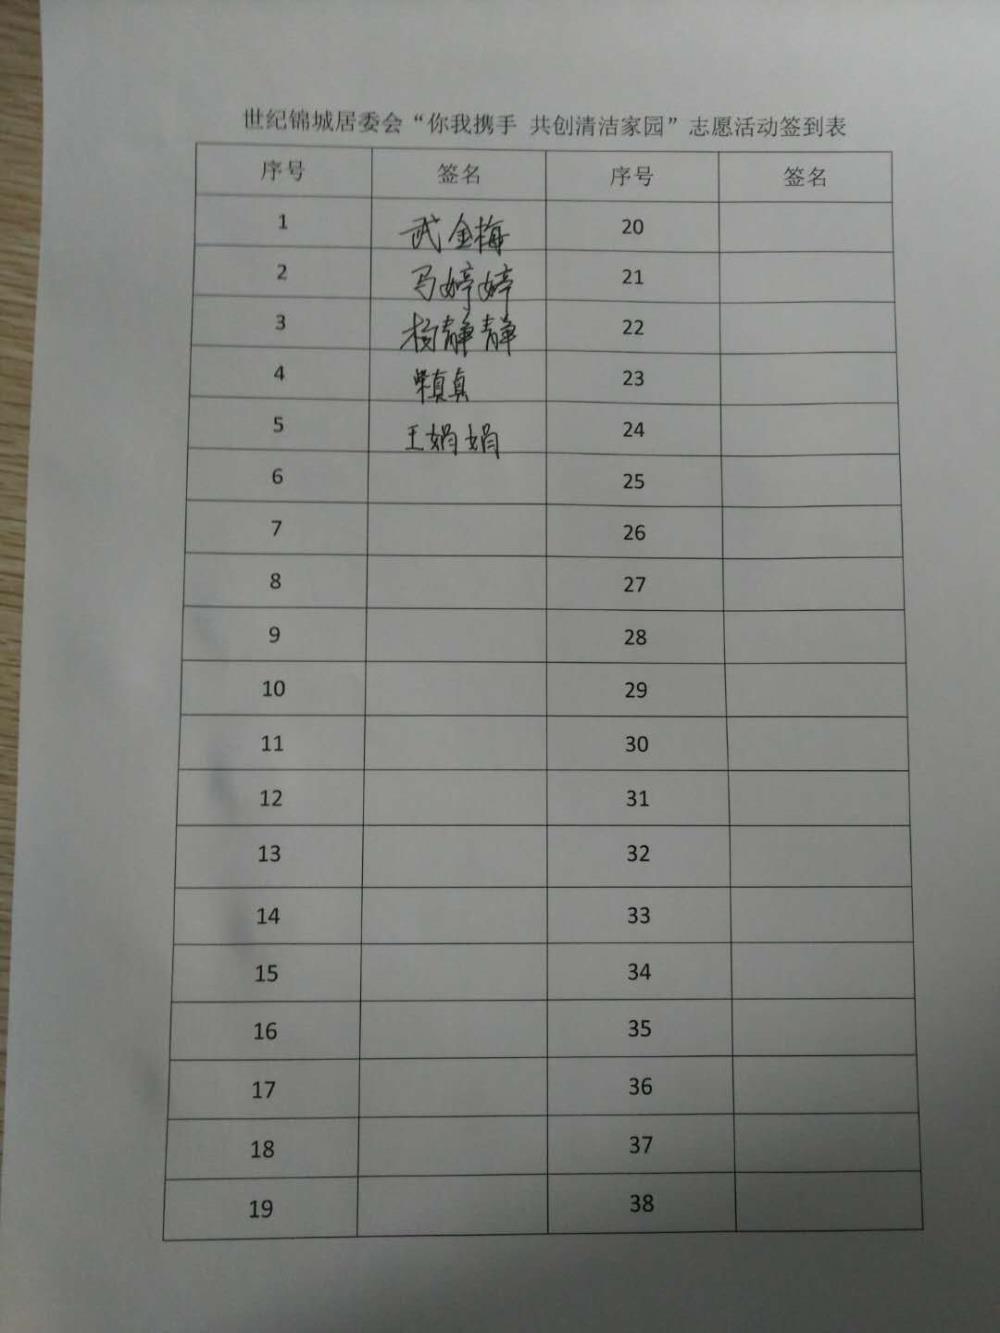 世纪锦城居委会“你我携手 共创清洁家园”志愿活动签到表
序号 签名 序号 签名
1 武金梅 20
2 马婷婷 21
3 杨静静 22
4 23
5 王娟娟 24
6 25
7 26
8 27
9 28
10 29
11 30
12 31
13 32
14 33
15 34
16 35
17 36
18 37
19 38